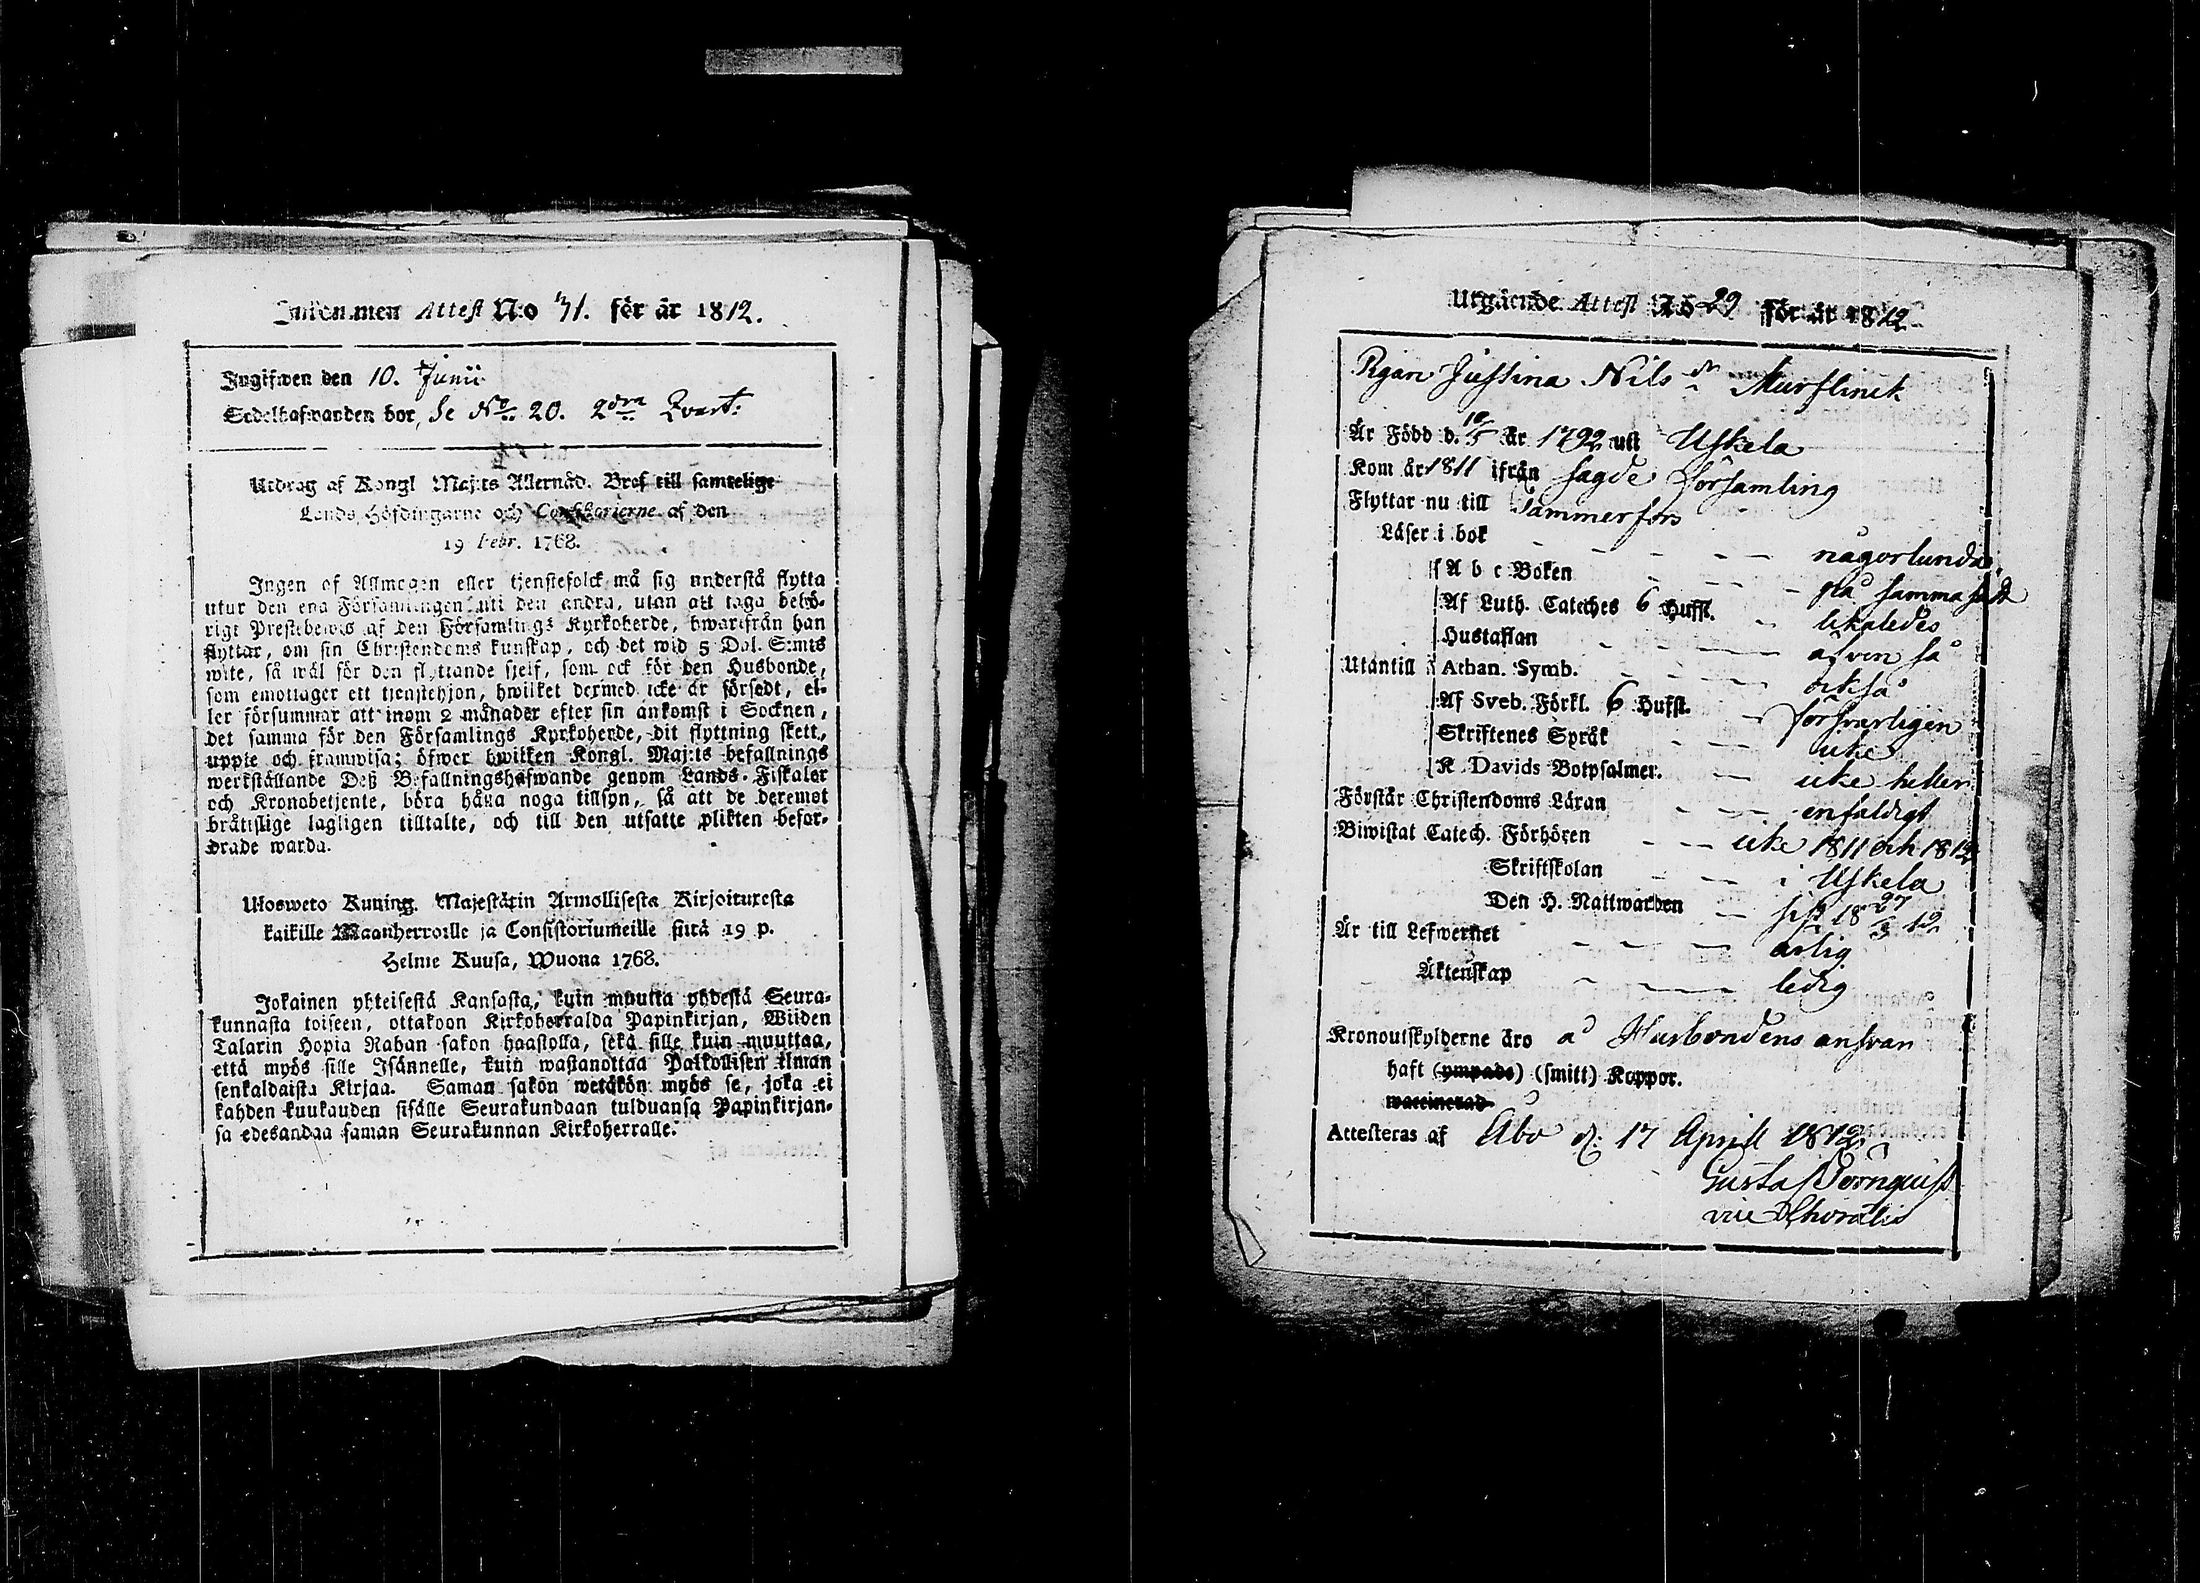 Inkommen Attest N:o 71. för år 1812.
Ingifwen den 10. Junii
Sedelhafwanden bor, se No. 20. 2dra Qvart:
Utdrag af Kongl Maj:ts Allernåd. Bref till samtelige
Lands Höfdingarne och Consistorierne af den
19 Febr. 1768.
Ingen af Allmogen eller tjenstefolck må sig understå flytta
utur den ena Församlingen uti den andra, utan att taga behö-
rigt Prestebewis af den Församlings Kyrkoherde, hwarifrån han
flyttar, om sin Christendoms kunskap, och det wid 5 Dal. S:mts
wite, så wäl för den flyttande sjelf, som ock för den Husbonde,
som emottager ett tjenstehjon, hwilket dermed icke är försedt, el-
ler försummar att inom 2 månader efter sin ankomst i Socknen,
det samma för den Församlings Kyrkoherde, dit flyttning skett,
uppte och framwisa; öfwer hwilken Kongl. Maj:ts befallnings
werkställande Deß Befallningshafwande genom Lands-Fiskaler
och Kronobetjente, böra hålla noga tillsyn, så att de deremot
bråttslige lagligen tilltalte, och till den utsatte plikten befor-
drade warda.
Ulosweto Kuning. Majestätin Armollisesta Kirjoituxesta
kaikille Maanherroille ja Consistoriumeille siitä 19 p.
Helme Kuusa, Wuona 1768.
Jokainen yhteisestä Kansasta, kuin muutta yhdestä Seura-
kunnasta toiseen, ottakoon Kirkoherralda Papinkirjan, Wiiden
Talarin Hopia Rahan sakon haastolla, sekä sille kuin muuttaa,
että myös sille Isännelle, kuin wastanottaa Palkollisen ilman
senkaldaista Kirjaa. Saman sakon wetäkön myös se, joka ei
kahden kuukauden sisälle Seurakundaan tulduansa Papinkirjan-
sa edesandaa saman Seurakunnan Kirkoherralle.
Utgående Attest No 29 för år 1812
Pigan Justina Nils dr Murflinck
Är Född d. 10/5 år 1792 uti Uskela
Kom år 1811 ifrån sagde Församling
Flyttar nu till Tammerfors
Läser i bok någorlunda
A b c Boken på samma sätt
Af Luth. Cateches 6 Hufst. likaledes
Hustaflan äfven så
Utantill Athan. Symb. också
Af Sveb. Förkl. 6 Hufst. försvarligen
Skriftenes Språk icke
K Davids Botpsalmer. icke heller
Förstår Christendoms Läran enfaldigt
Biwistat Catech. Förhören icke 1811 och 1812
Skriftskolan i Uskela
Den H. Nattwarden sist 18 27/3 12
Är till Lefwernet ärlig
Äktenskap ledig
Kronoutskylderne äro å Husbondens answar
haft (ympade) (smitt) Koppor.
waccinerad
Attesteras af Åbo d. 17 April 1812
Gustaf Törnquist
vice Choralis